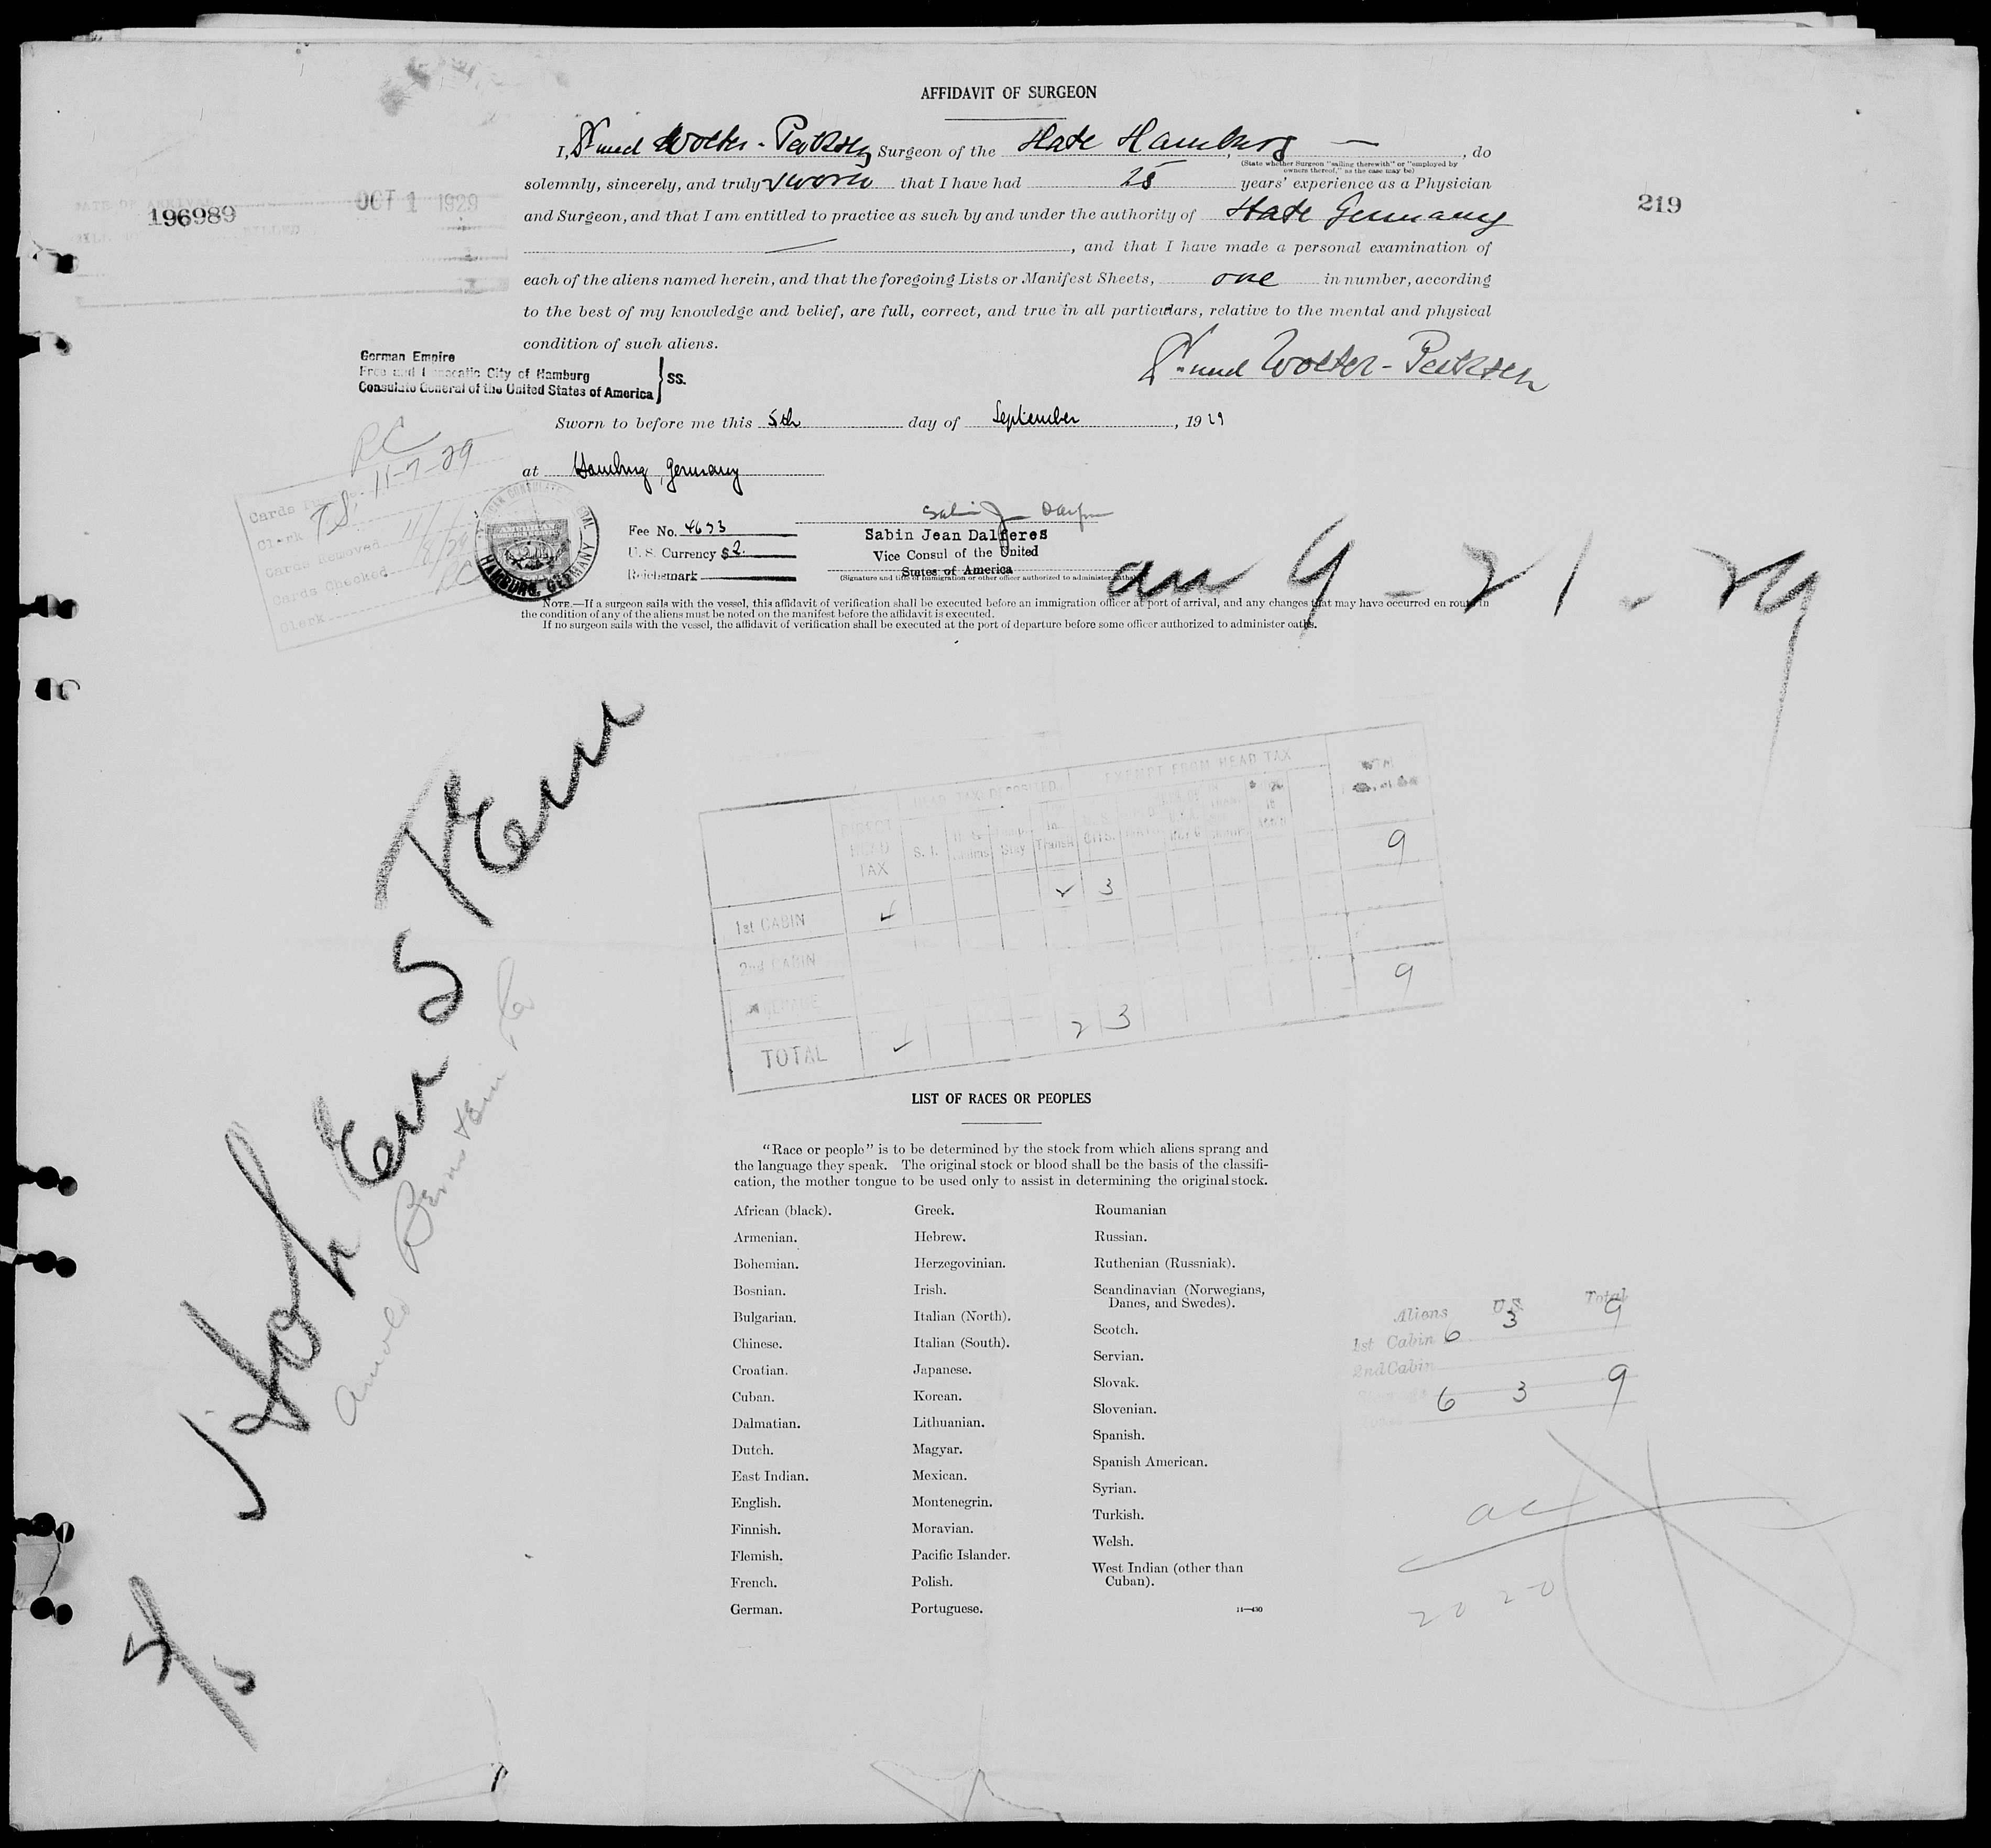 AFFIDAVIT OF SURGEON
I, Dr med Wolter-Pe Surgeon of the State Hamburg —, do
(State whether Surgeon "sailing therewith" or "employed by
owners thereof," as the case may be)
solemnly, sincerely, and truly sworn that I have had 25 years' experience as a Physician
and Surgeon, and that I am entitled to practice as such by and under the authority of State Germany
—, and that I have made a personal examination of
each of the aliens named herein, and that the foregoing Lists or Manifest Sheets, one in number, according
to the best of my knowledge and belief, are full, correct, and true in all particulars, relative to the mental and physical
condition of such aliens.
196989
OCT 1 1929
DATE OF ARRIVAL
219
German Empire
Free and Hanseatic City of Hamburg
Consulate General of the United States of America } SS.
Dr med Wolter-
Sworn to before me this 5th day of September, 1929
at Hamburg, Germany
RC
11-7-29
Cards
Clerk
Cards Removed
Cards Checked
Clerk
HAMBURG, GERMANY
Fee No. 4673
U. S. Currency $2.
Reichsmark
Sabin J Dalferes
Sabin Jean Dalferes
Vice Consul of the United
States of America
(Signature and title of immigration or other officer authorized to administer oaths)
NOTE.—If a surgeon sails with the vessel, this affidavit of verification shall be executed before an immigration officer at port of arrival, and any changes that may have occurred en route in
the condition of any of the aliens must be noted on the manifest before the affidavit is executed.
If no surgeon sails with the vessel, the affidavit of verification shall be executed at the port of departure before some officer authorized to administer oaths.
arr 9-21-29
Hohenstein
Arnold Bernstein Co
5/5
HEAD TAX DEPOSITED
EXEMPT FROM HEAD TAX
DIRECT HEAD TAX
S. I.
In Transit
CITS.
9
1st CABIN ✓ ✓ 3
2nd CABIN
9
TOTAL ✓ 2 3
LIST OF RACES OR PEOPLES
"Race or people" is to be determined by the stock from which aliens sprang and
the language they speak. The original stock or blood shall be the basis of the classifi-
cation, the mother tongue to be used only to assist in determining the original stock.
African (black).
Armenian.
Bohemian.
Bosnian.
Bulgarian.
Chinese.
Croatian.
Cuban.
Dalmatian.
Dutch.
East Indian.
English.
Finnish.
Flemish.
French.
German.
Greek.
Hebrew.
Herzegovinian.
Irish.
Italian (North).
Italian (South).
Japanese.
Korean.
Lithuanian.
Magyar.
Mexican.
Montenegrin.
Moravian.
Pacific Islander.
Polish.
Portuguese.
Roumanian
Russian.
Ruthenian (Russniak).
Scandinavian (Norwegians,
Danes, and Swedes).
Scotch.
Servian.
Slovak.
Slovenian.
Spanish.
Spanish American.
Syrian.
Turkish.
Welsh.
West Indian (other than
Cuban).
14—430
Aliens U.S. Total
1st Cabin 6 3 9
2nd Cabin
6 3 9
ac
2020